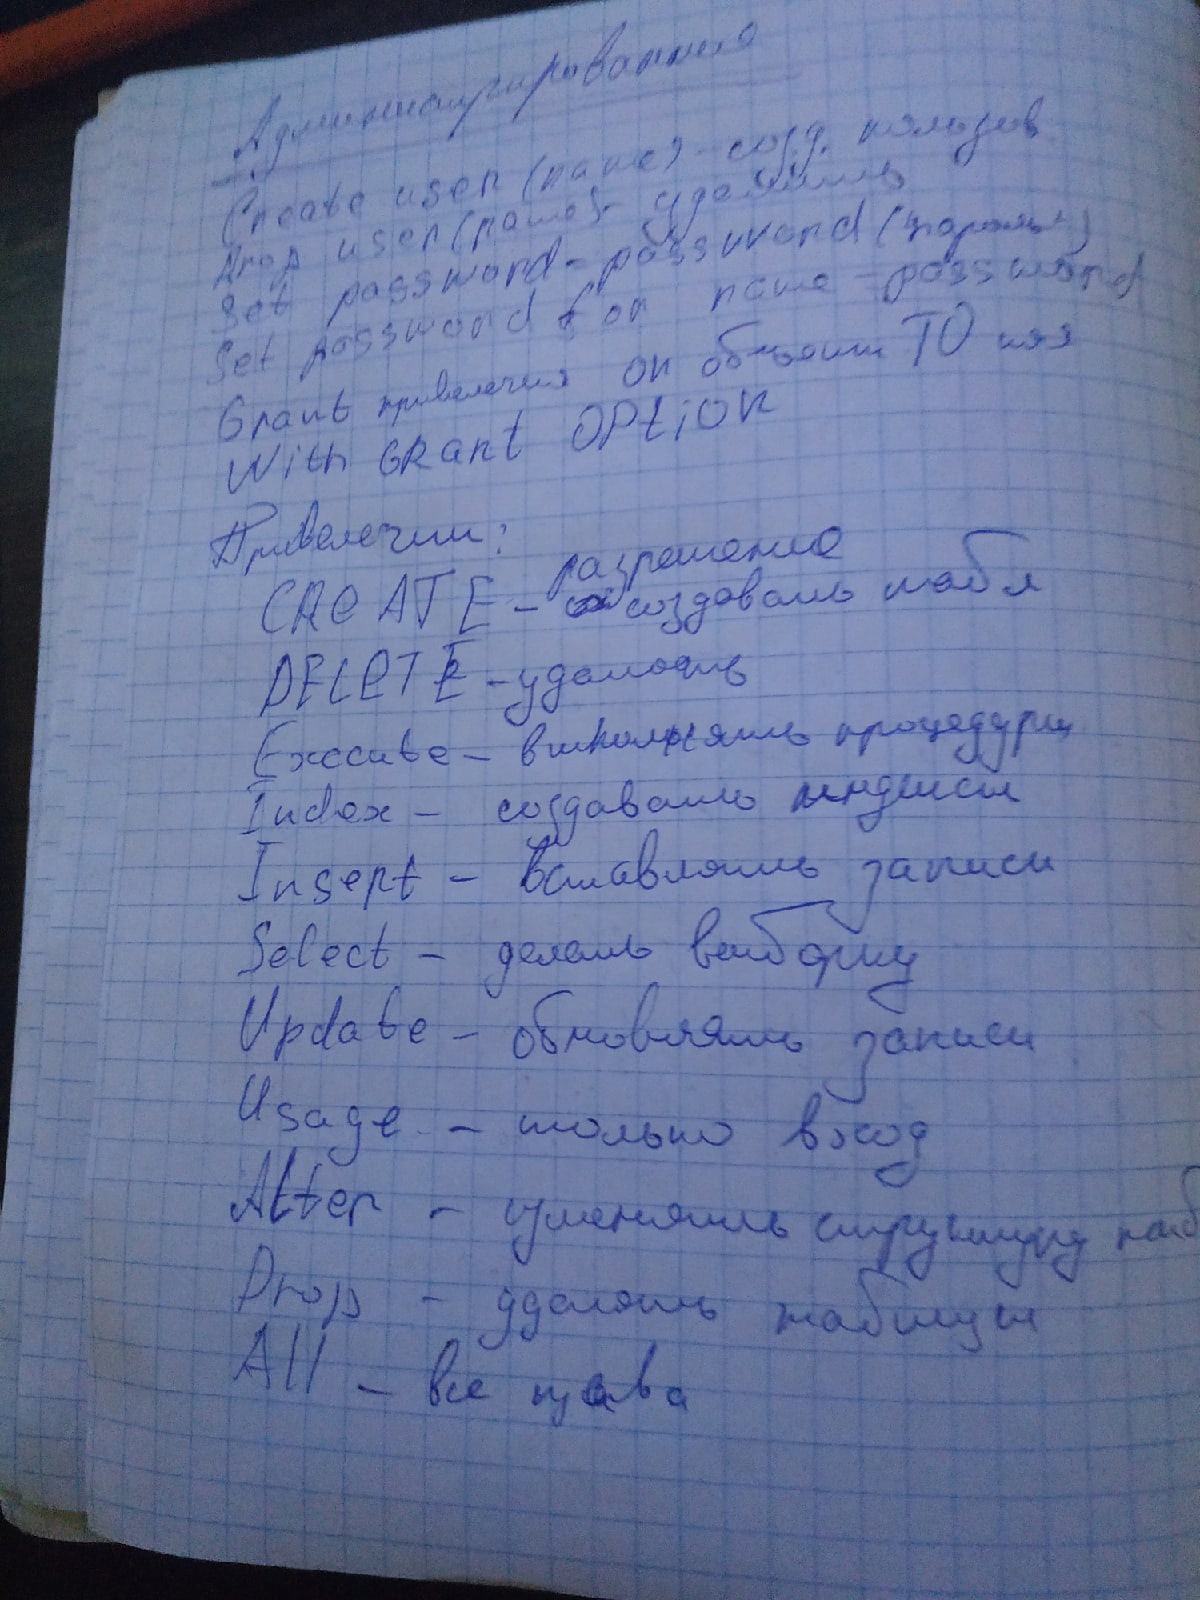 Администрирование
Create user (name) - созд. пользов
Drop user (name) - удалить
Set password - password (пароль)
Set password for name - password
Grant привелегия on объект TO
With GRant OPtiON
Привелегии:
разрешение
CREATE - создавать табл
DELETE - удалять
Execute - выполнять процедуры
Index - создавать индексы
Insept - вставлять записи
Select - делать выборку
Update - обновлять записи
Usage - только вход
Alter - изменять структуру таб
Drop - удалять таблицы
All - все права